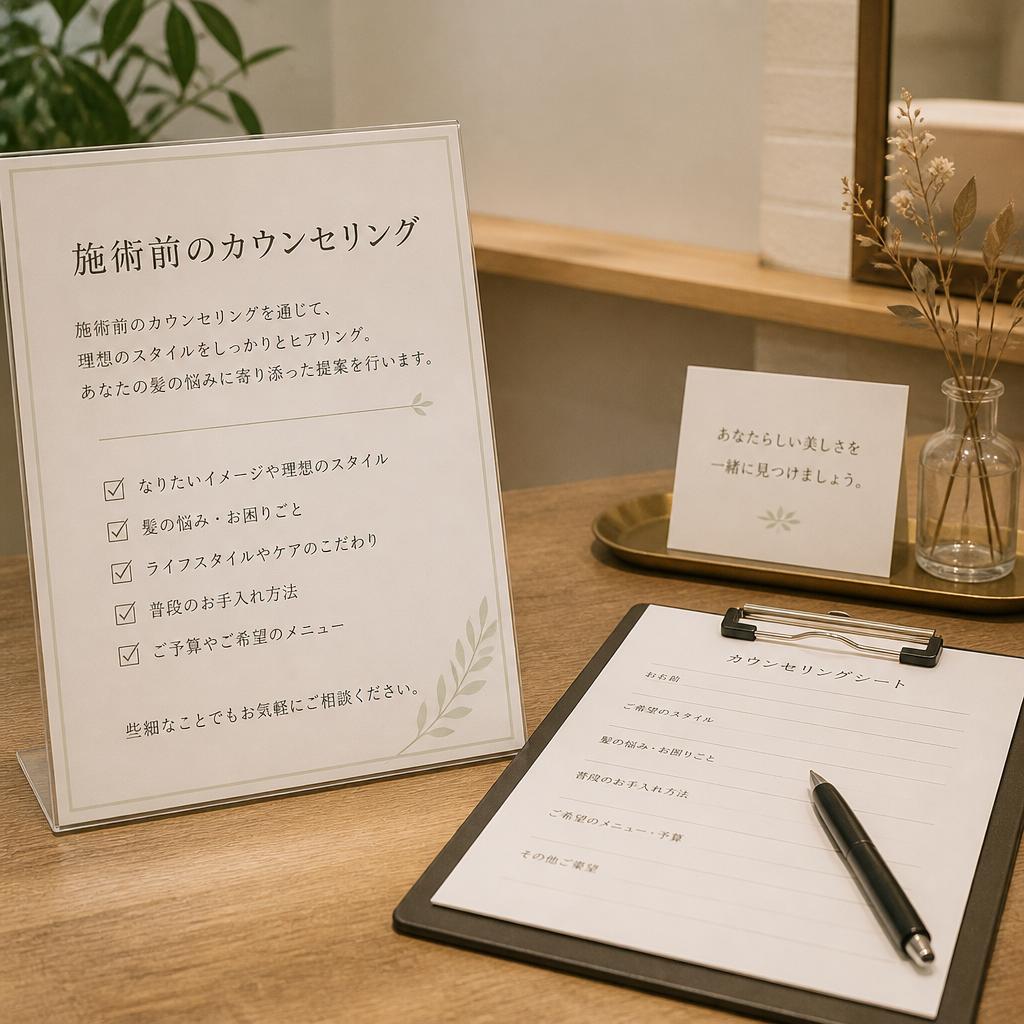 施術前のカウンセリング
施術前のカウンセリングを通じて、
理想のスタイルをしっかりとヒアリング。
あなたの髪の悩みに寄り添った提案を行います。
なりたいイメージや理想のスタイル
髪の悩み・お困りごと
ライフスタイルやケアのこだわり
普段のお手入れ方法
ご予算やご希望のメニュー
些細なことでもお気軽にご相談ください。
あなたらしい美しさを
一緒に見つけましょう。
カウンセリングシート
お名前
ご希望のスタイル
髪の悩み・お困りごと
普段のお手入れ方法
ご希望のメニュー・予算
その他ご